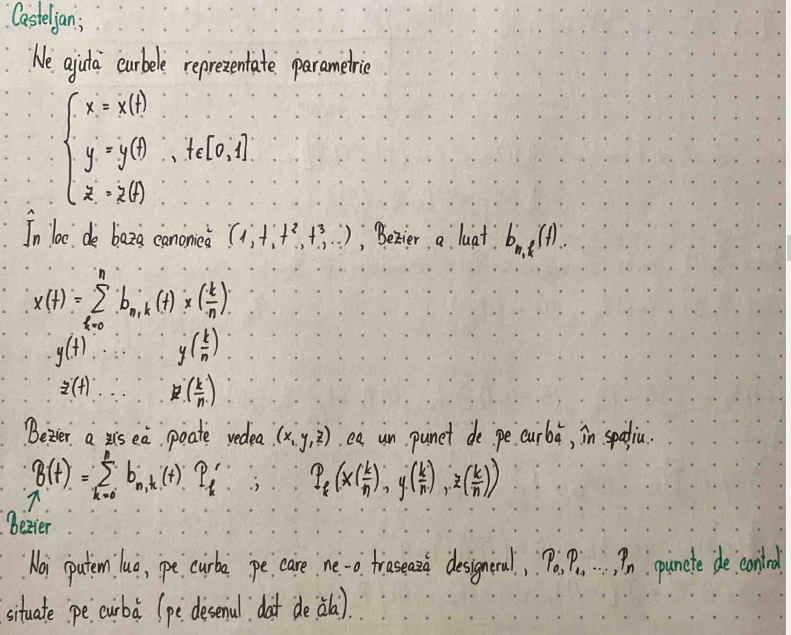 Casteljan;
Ne ajută curbele reprezentate parametric
x = x(t)
y = y(t) , t∈[0,1]
z = z(t)
În loc de baza canonică (1, t, t², t³, ...), Bezier a luat b_{n,k}(t).
x(t) = ∑_{k=0}^{n} b_{n,k}(t) x(k/n)
y(t) .... y(k/n)
z(t) ... z(k/n)
Bezier a zis că poate vedea (x, y, z) ca un punct de pe curbă, în spațiu.
B(t) = ∑_{k=0}^{n} b_{n,k}(t) P_k ; P_k (x(k/n), y(k/n), z(k/n))
Bezier
Noi putem lua, pe curba pe care ne-o trasează designerul, P₀, P₁, ..., Pₙ puncte de control
situate pe curbă (pe desenul dat de ăla).